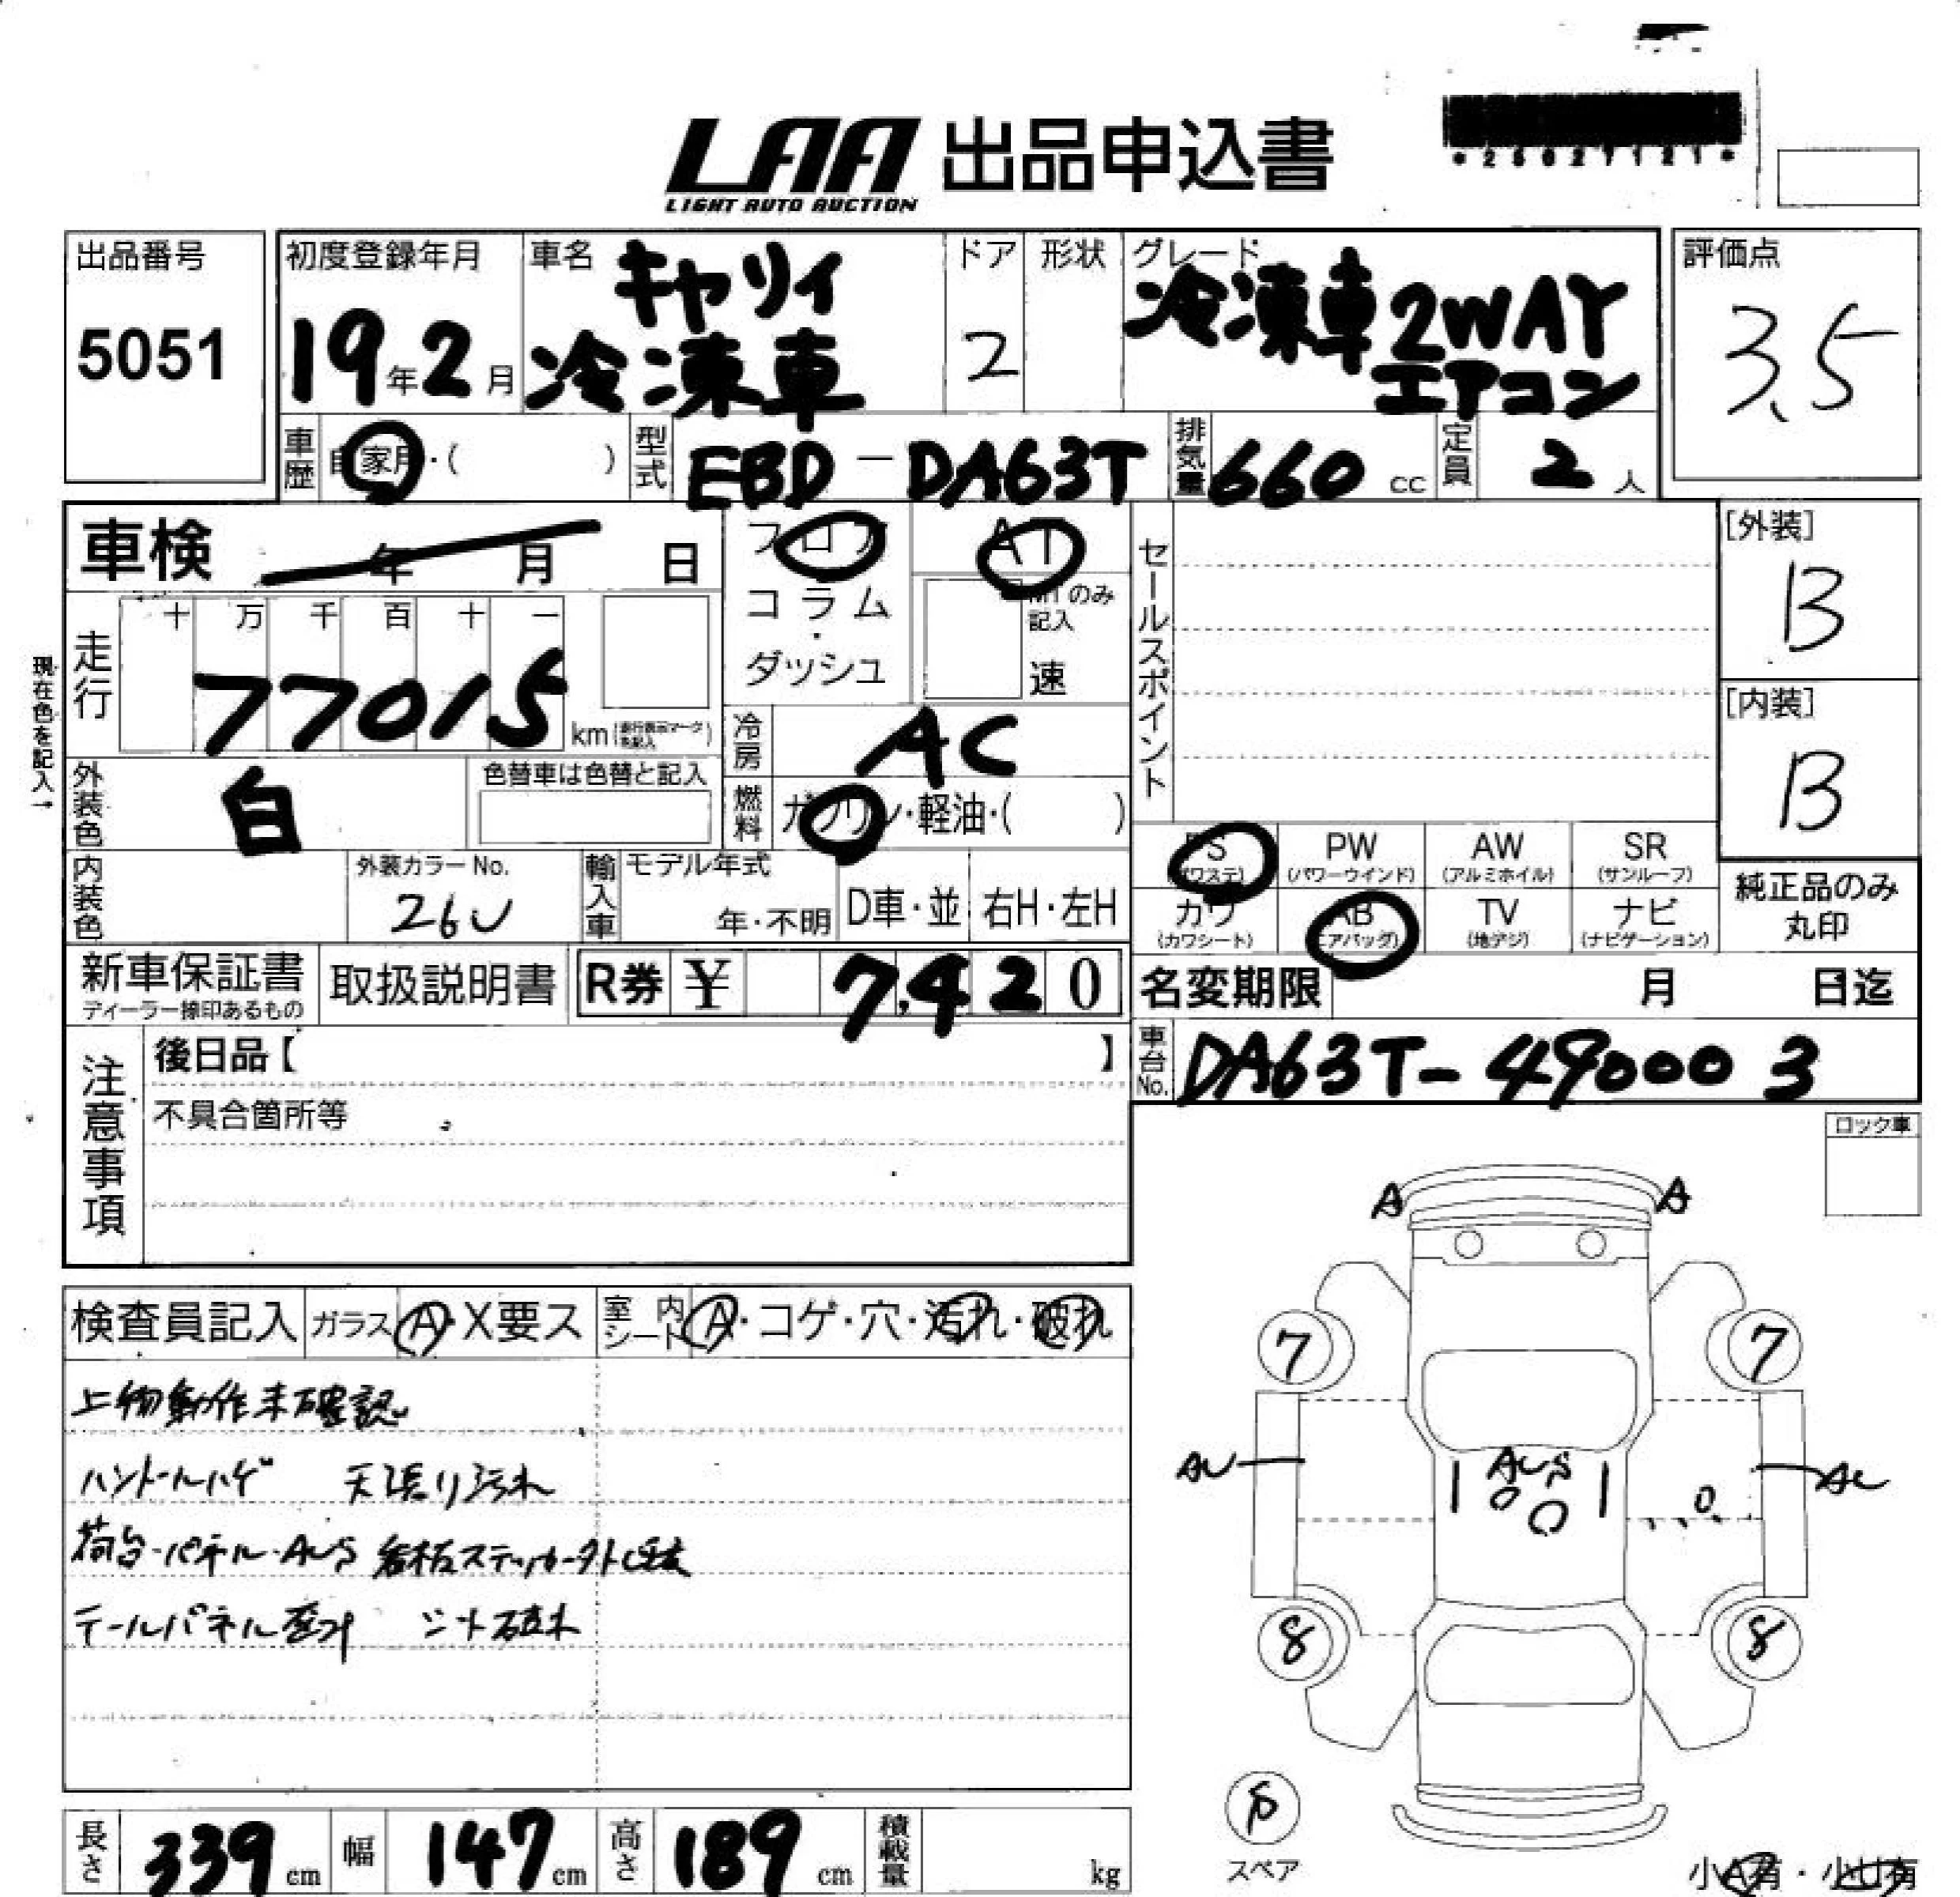 LAA 出品申込書
LIGHT AUTO AUCTION
*25027121*
出品番号
5051
初度登録年月
19年2月
車名 キャリイ
冷凍車
ドア
2
形状
グレード
冷凍車2WAY
エアコン
評価点
3.5
車歴 自家用・( )
型式 EBD-DA63T
排気量 660 cc
定員 2 人
車検 年 月 日
フロア
コラム
・
ダッシュ
AT
MTのみ
記入
速
セールスポイント
[外装]
B
[内装]
B
現在色を記入→
走行
十 万 千 百 十 一
77015
km (走行表示マークを記入)
冷房 AC
外装色 白
色替車は色替と記入
燃料 ガソリン・軽油・( )
内装色
外装カラーNo.
26U
輸入車
モデル年式
年・不明
D車・並
右H・左H
PS
(パワステ)
PW
(パワーウインド)
AW
(アルミホイル)
SR
(サンルーフ)
カワ
(カワシート)
AB
(エアバッグ)
TV
(地デジ)
ナビ
(ナビゲーション)
純正品のみ
丸印
新車保証書
ディーラー捺印あるもの
取扱説明書
R券 ¥ 7,420
名変期限 月 日迄
車台No. DA63T-490003
注意事項
後日品【 】
不具合箇所等
ロック車
検査員記入
ガラス A・X要ス
室内シート A・コゲ・穴・汚れ・破れ
上物動作未確認
ハンドルハゲ 天張り汚れ
荷台・パネル・AUS 看板ステッカー外し跡
テールパネル歪み シート破れ
A A
7 7
AU AUS AU
8 8
スペア
長さ 339 cm
幅 147 cm
高さ 189 cm
積載量 kg
小A有・小U有